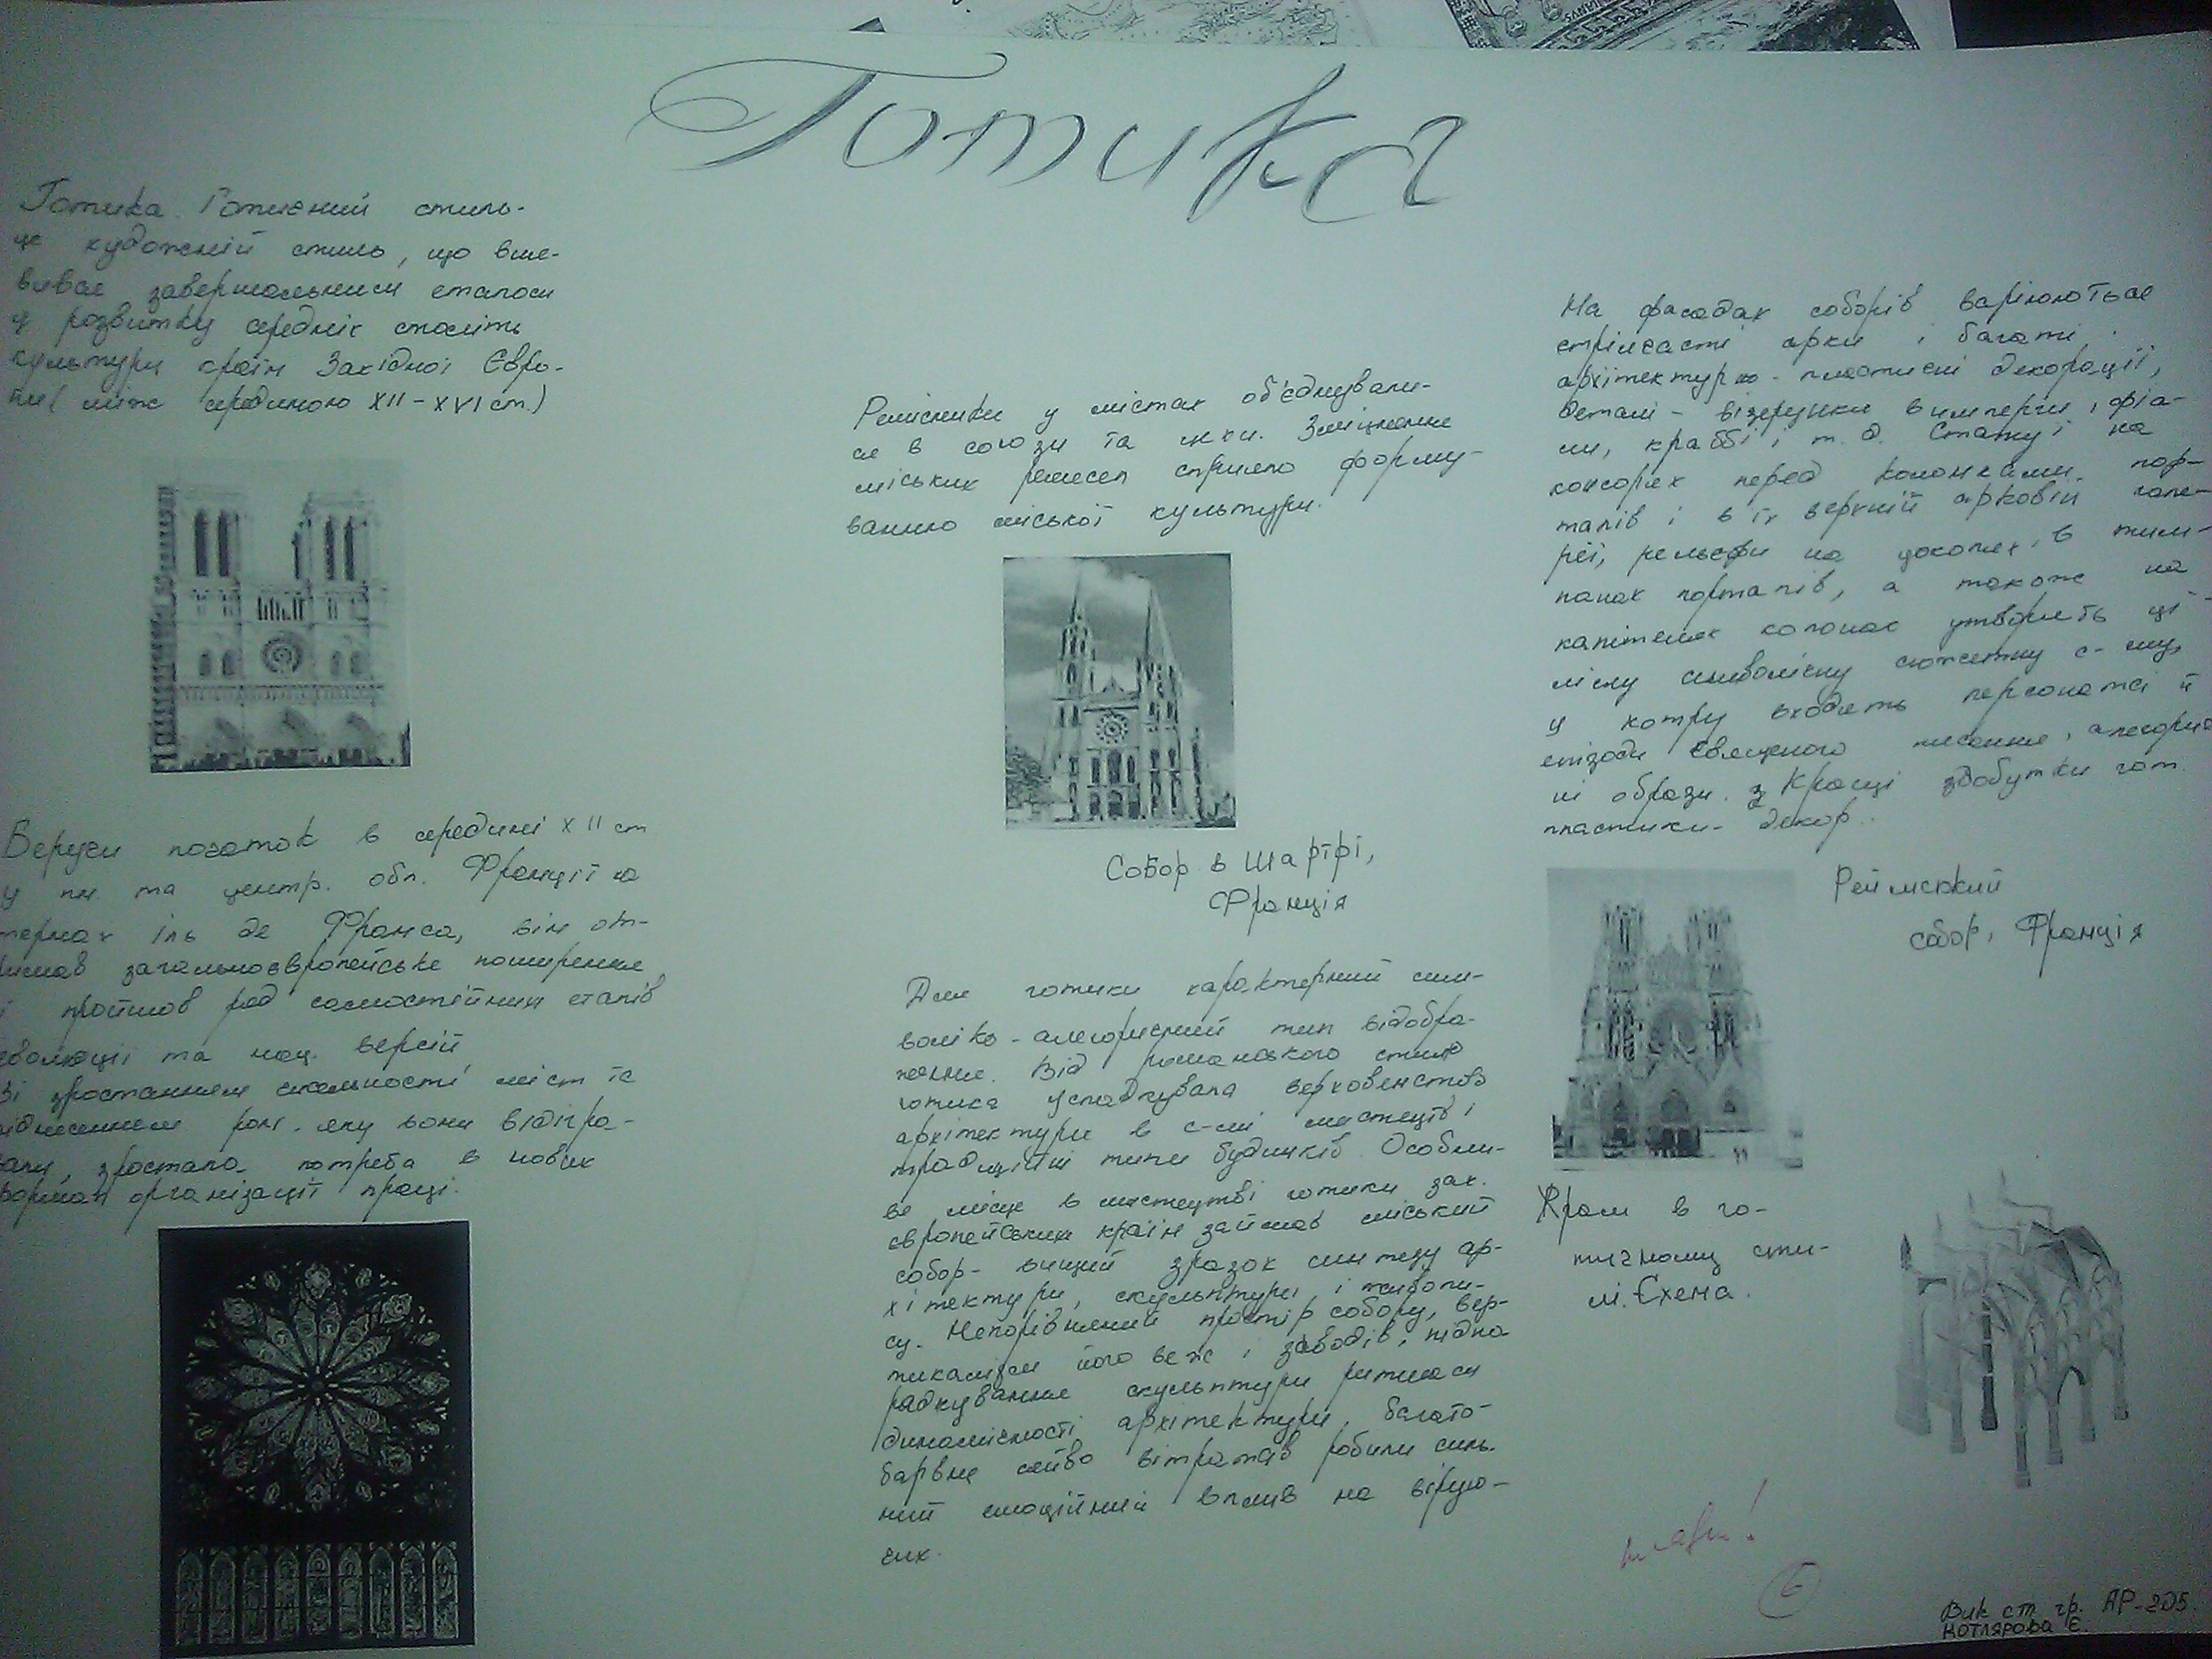 Готика
Готика. Готичний стиль-
це художній стиль, що вия-
вився завершальним етапом
у розвитку середніх століть
культури країн Західної Євро-
пи (між серединою XII - XVI ст.)
Беручи початок в середині XII ст
у пн. та центр. обл. Франції на
тернах Іль де Франса, він от-
римав загальноєвропейське поширення
і пройшов ряд самостійних етапів
еволюції та нац. версій
Зі зростанням сильності міст та
піднесенням ролі, яку вони відігра-
вали, зростала потреба в нових
формах організації праці.
Ремісники у містах об'єднували-
ся в союзи та цехи. Зміцнення
міських ремесел сприяло форму-
ванню міської культури.
Собор в Шартрі,
Франція
Для готики характерний сим-
воліко-алегоричний тип відобра-
ження. Від романського стилю
готика успадкувала верховенство
архітектури в с-мі мистецтв і
традиційні типи будинків. Особли-
ве місце в мистецтві готики зах.
європейських країн займав міський
собор- вищий зразок синтезу ар-
хітектури, скульптури і живопи-
су. Непорівняний простір собору, вер-
тикалізм його веж і заводів, підпо
рядкування скульптури ритмам
динамічності архітектури, багато-
барвне сяйво вітражів робили силь-
ний емоційний вплив на віруючо-
чих.
На фасадах соборів варіюються
стрілчасті арки і багаті
архітектурно-пластичні декорації,
деталі - візерунки вимперги, фіа-
ли, краббі і т.д. Статуї на
консолях перед колонками пор-
талів і в їх верхній арковій гале-
реї, рельєфи на цоколях і в тим-
панах порталів, а також на
капітелях колонах утворють ці-
лісну символічну сюжетну с-му,
у котру входять персонажі й
епізоди Священого писання, алегорич
ні образи. з Кращі здобутки гот.
пластики- декор..
Реймський
собор, Франція
Храм в го-
тичному сти-
лі. Схема.
6
Вик ст гр. АР-205
Котлярова Є.